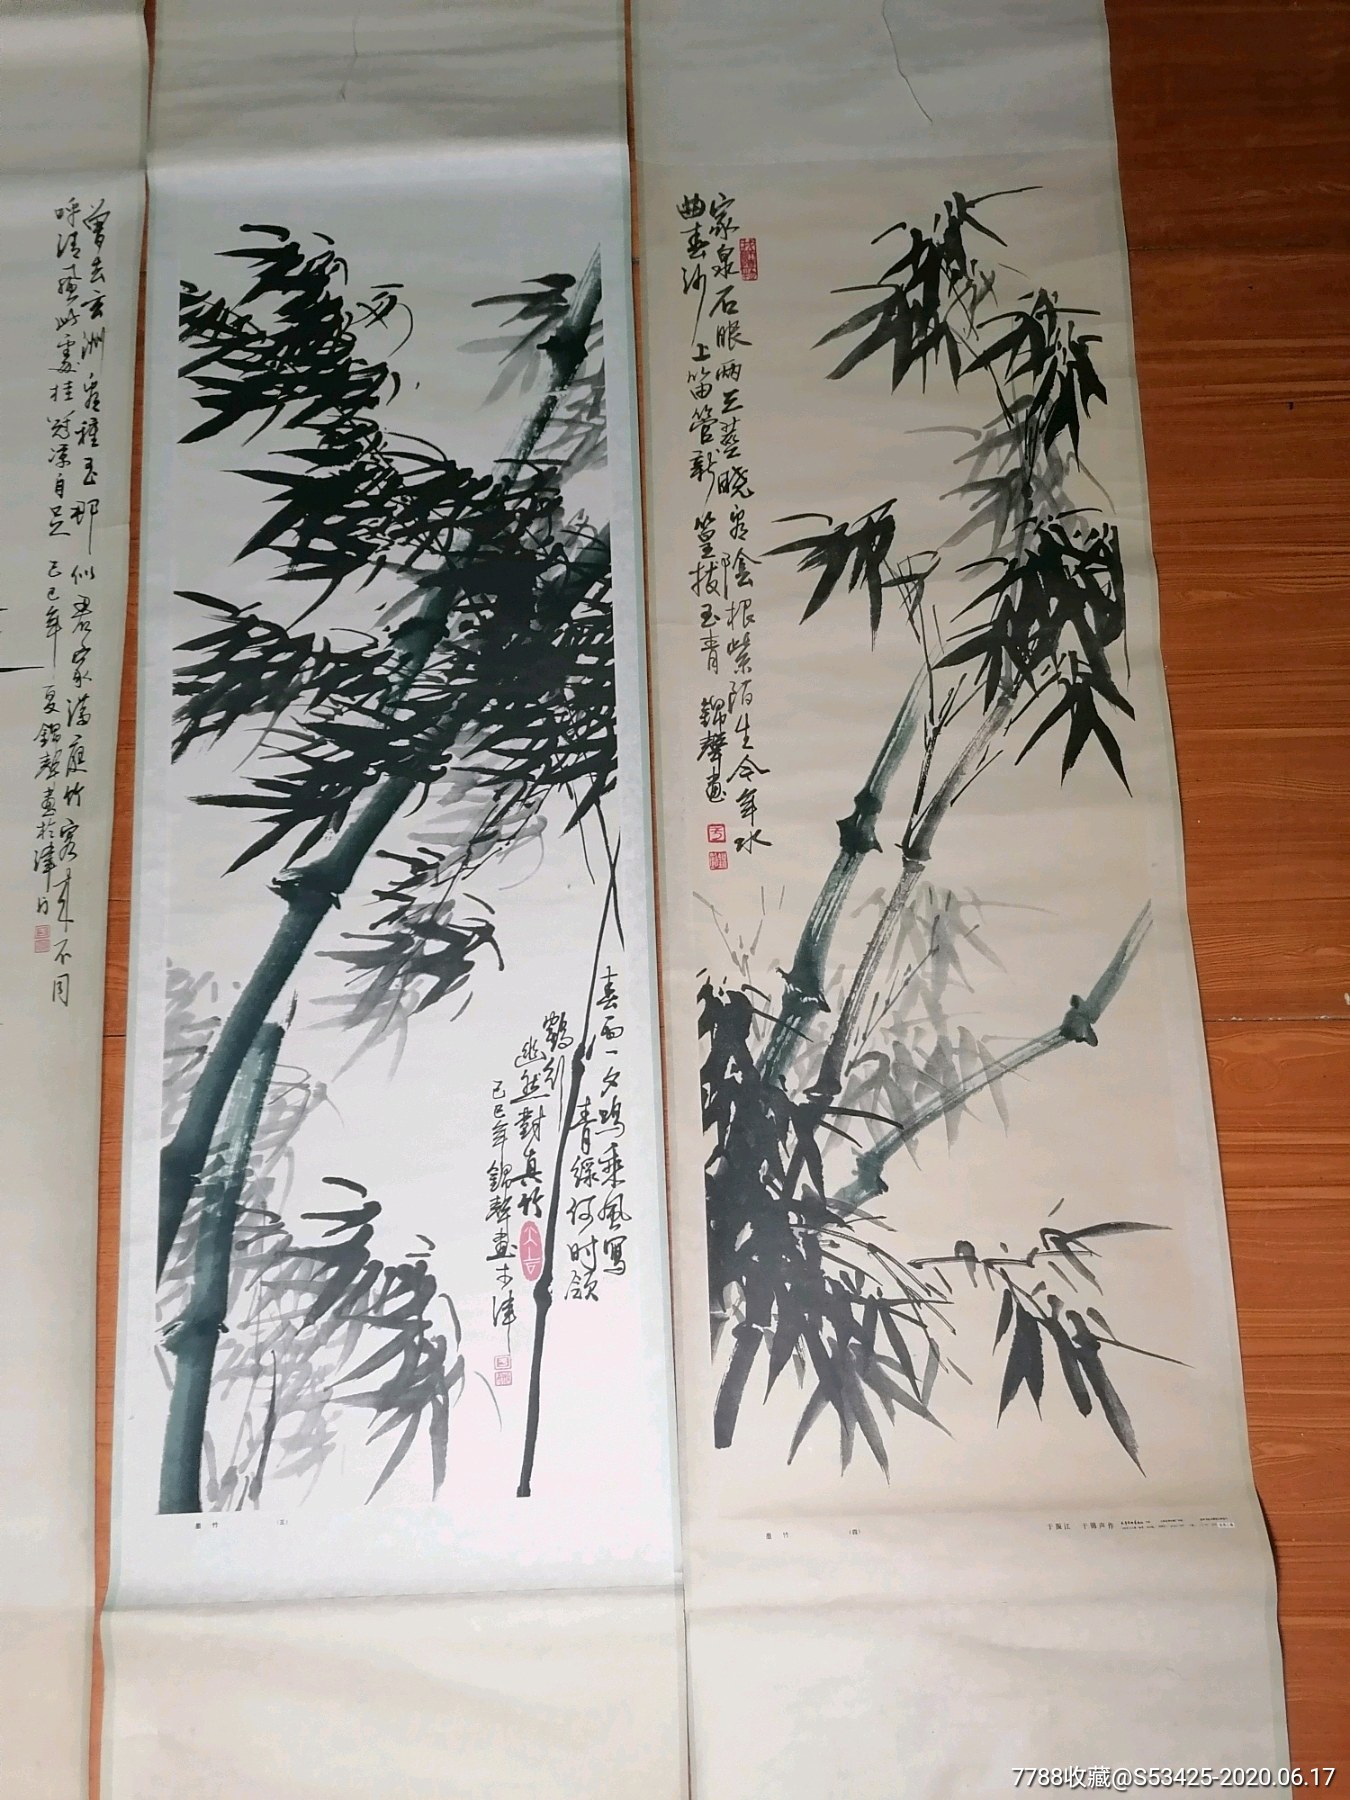 家泉石眼两三茎晓看陰根紫陌生今年水
曲春沙上笛管新篁拔玉青 錦聲畫
春雨一夕鸣乘風寫
青綠何时领
鶴别
幽然對真竹
己巳年錦聲畫於津
曾去玄洲看種玉那似君家满庭竹客来不用
呼清風此處挂冠凉自足 己巳年夏錦聲畫於津门
墨竹 (三)
墨竹 (四)
于振江 于锦声作
7788收藏@S53425-2020.06.17